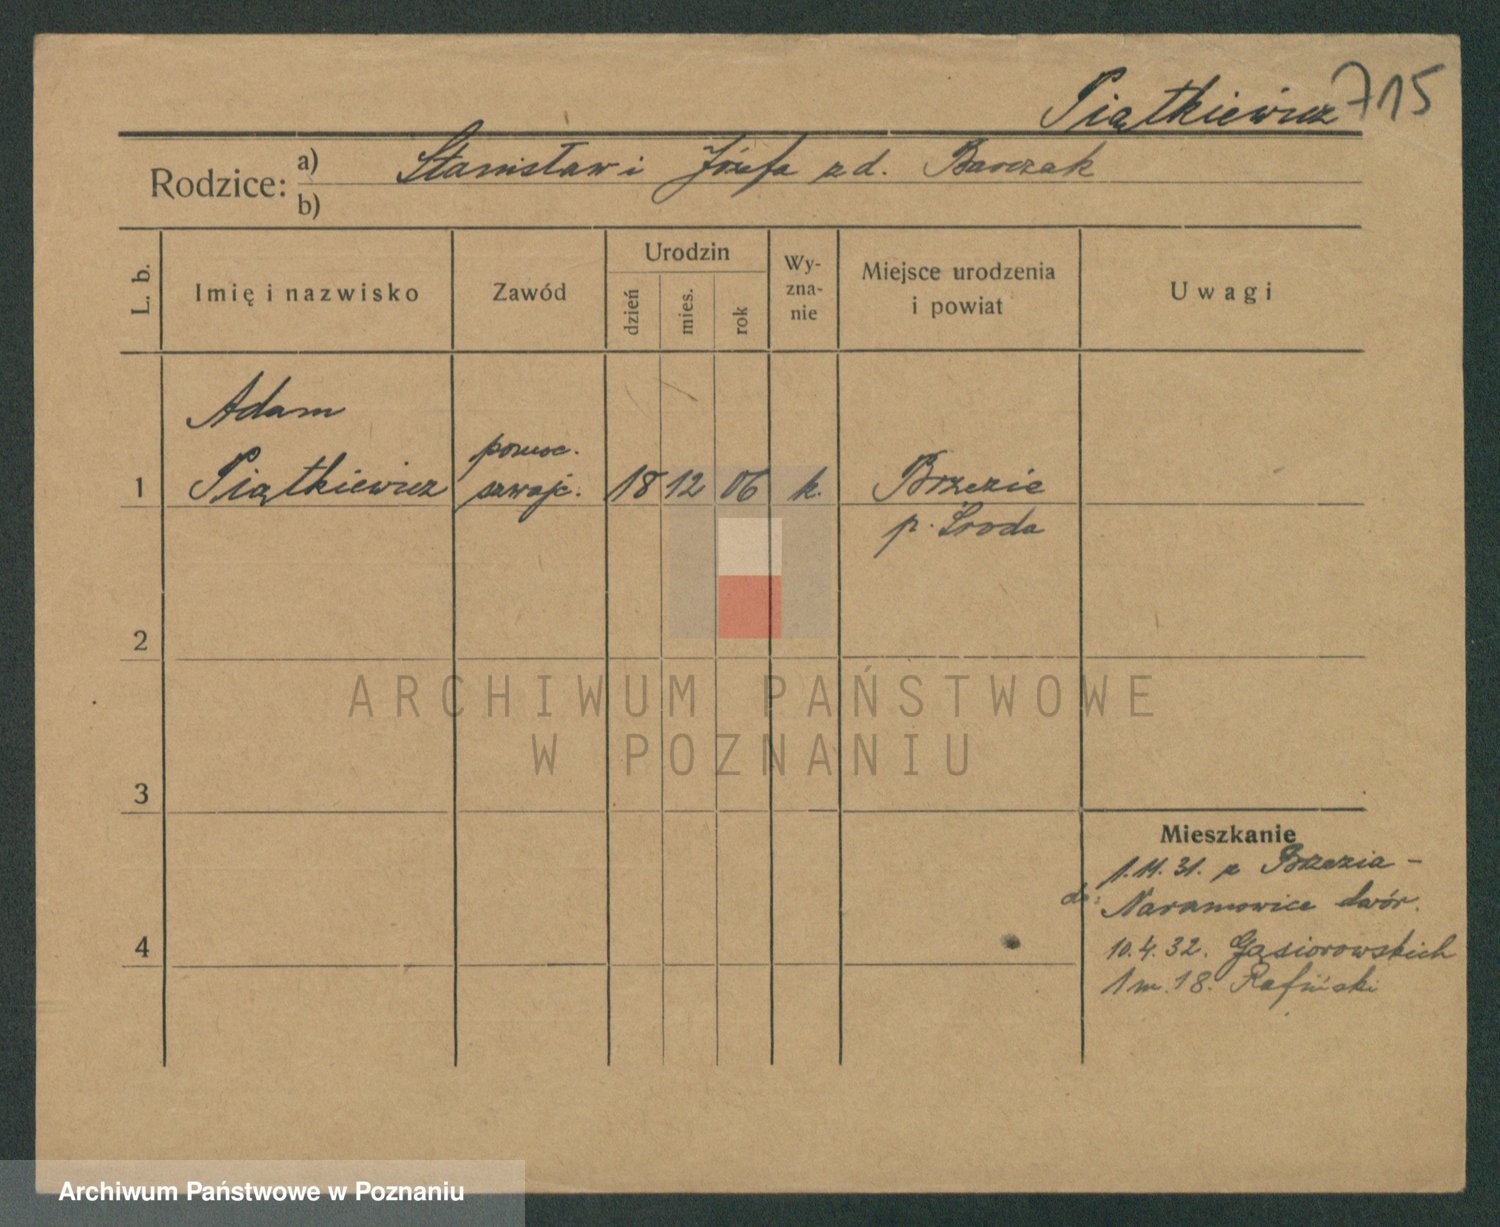 Piątkiewicz 715
Rodzice: a) Stanisław i Józefa z d. Barczak
b)
L. b.
Imię i nazwisko
Zawód
Urodzin
dzień
mies.
rok
Wy-
zna-
nie
Miejsce urodzenia
i powiat
Uwagi
Adam
1 Piątkiewicz
pomoc.
szwajc.
18 12 06 k.
Brzezie
p. Środa
2
3
4
ARCHIWUM PAŃSTWOWE
W POZNANIU
Mieszkanie
1.11.31. z Brzezia -
do: Naramowice dwór.
10.4.32. Gąsiorowskich
1 m. 18.
Archiwum Państwowe w Poznaniu